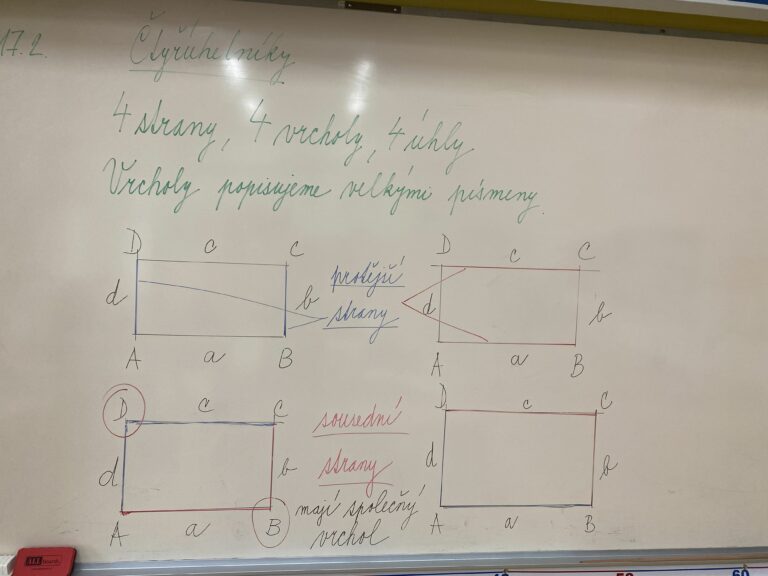 17.2.
Čtyřúhelníky
4 strany, 4 vrcholy, 4 úhly
Vrcholy popisujeme velkými písmeny.
D c C
d b
A a B
protější
strany
D c C
d b
A a B
D c C
d b
A a B
sousední
strany
mají společný
vrchol
D c C
d b
A a B
50
60